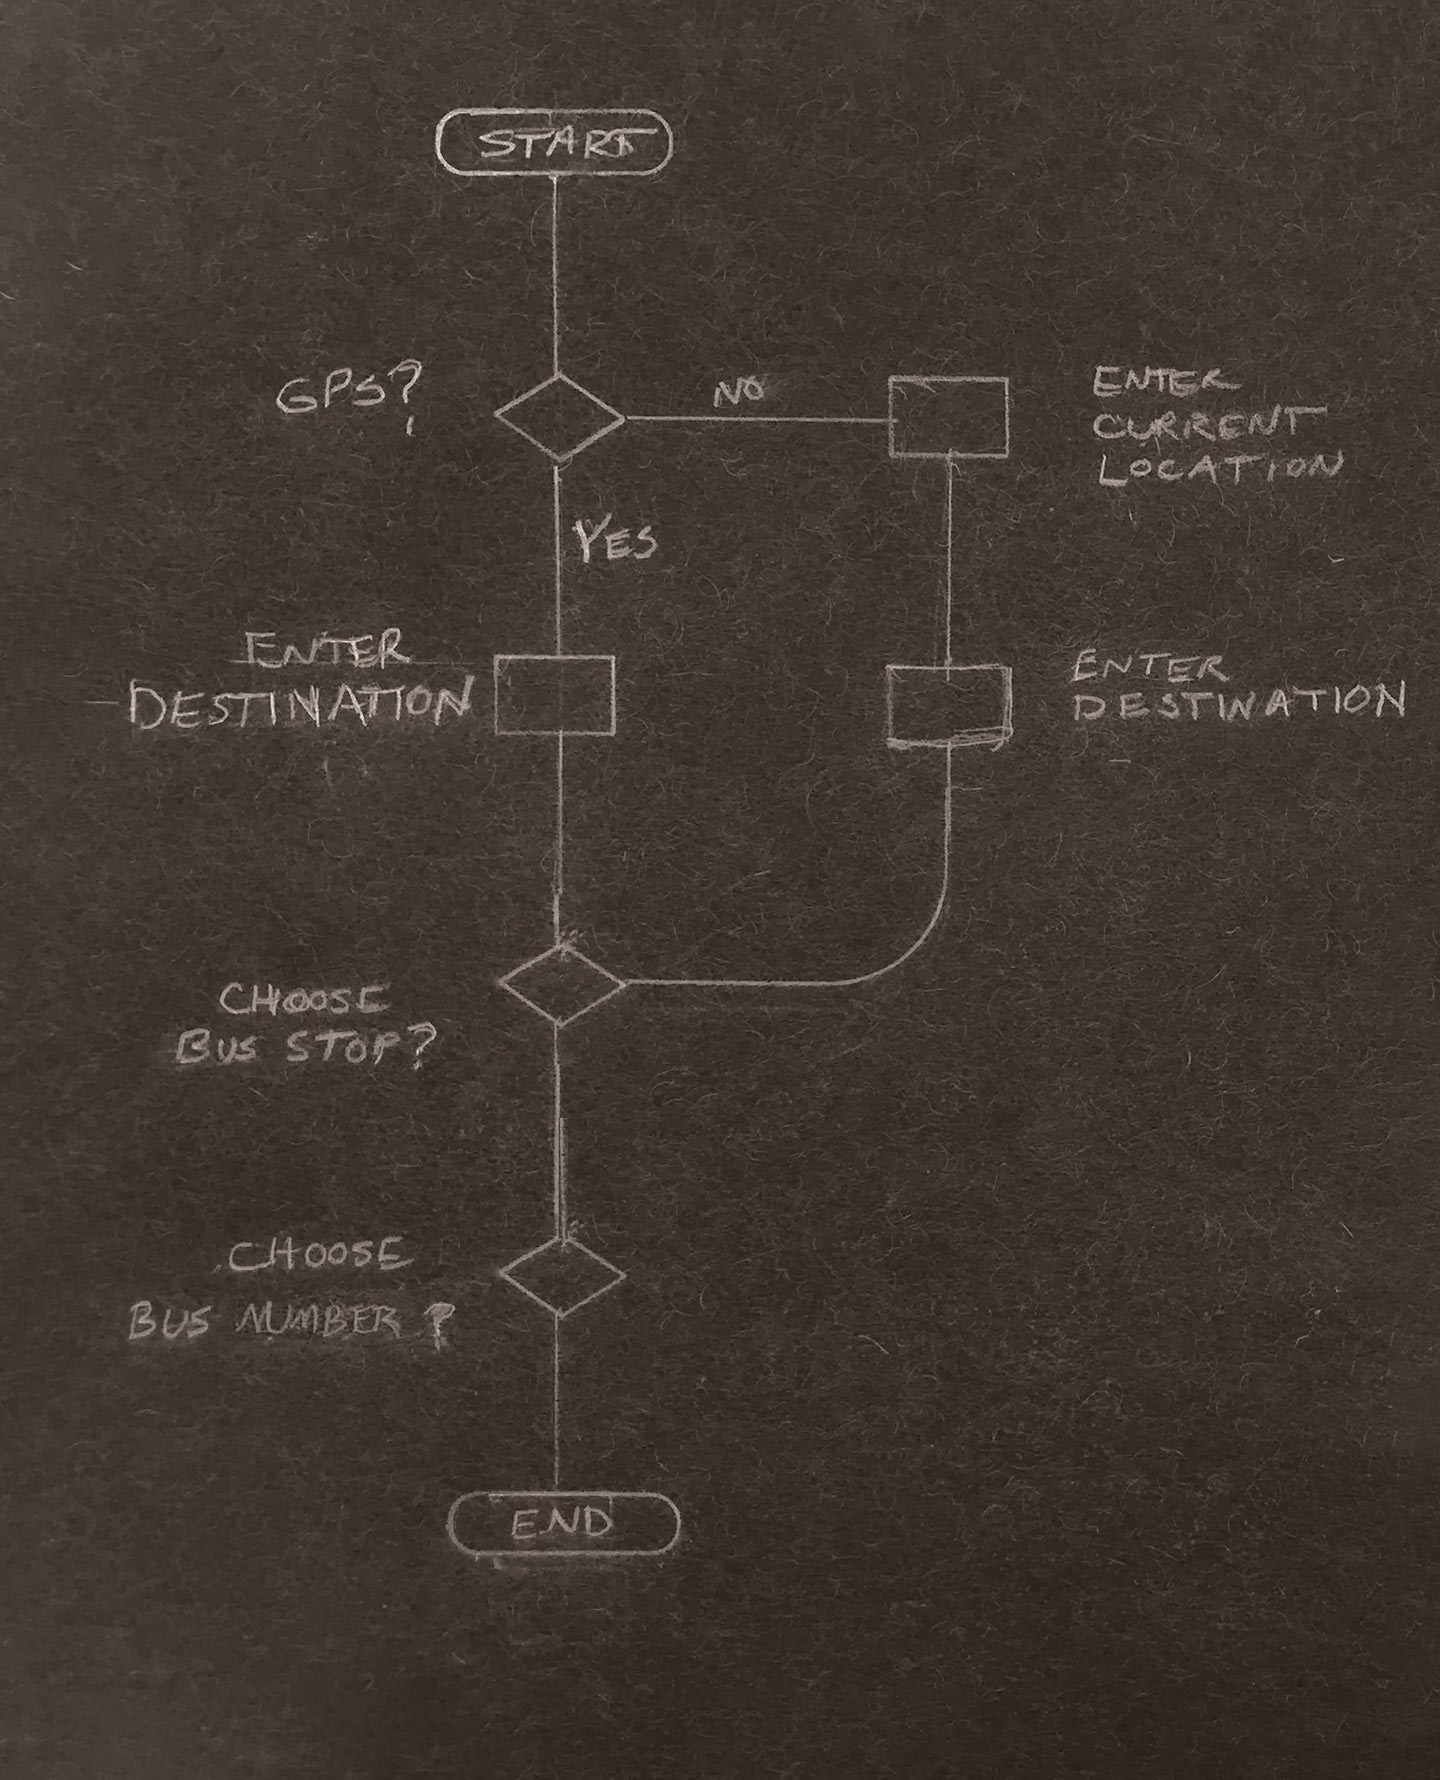 START
GPS?
NO
ENTER
CURRENT
LOCATION
YES
ENTER
DESTINATION
ENTER
DESTINATION
CHOOSE
BUS STOP?
CHOOSE
BUS NUMBER?
END